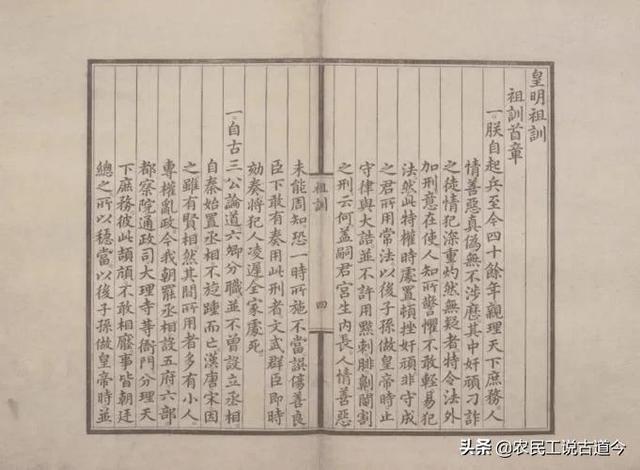 皇明祖訓
祖訓首章
一朕自起兵至今四十餘年親理天下庶務人
情善惡真偽無不涉歷其中奸頑刁詐
之徒情犯深重灼然無疑者特令法外
加刑意在使人知所警懼不敢輕易犯
法然此特權時處置頓挫奸頑非守成
之君所用常法以後子孫做皇帝時止
守律與大誥並不許用黥刺腓劓閹割
之刑云何蓋嗣君宮生內長人情善惡
祖訓
四
未能周知恐一時所施不當誤傷善良
臣下敢有奏用此刑者文武群臣即時
劾奏將犯人凌遲全家處死
一自古三公論道六卿分職並不曾設立丞相
自秦始置丞相不旋踵而亡漢唐宋因
之雖有賢相然其間所用者多有小人
專權亂政今我朝罷丞相設五府六部
都察院通政司大理寺等衙門分理天
下庶務彼此頡頏不敢相壓事皆朝廷
總之所以穩當以後子孫做皇帝時並
头条 @农民工说古道今